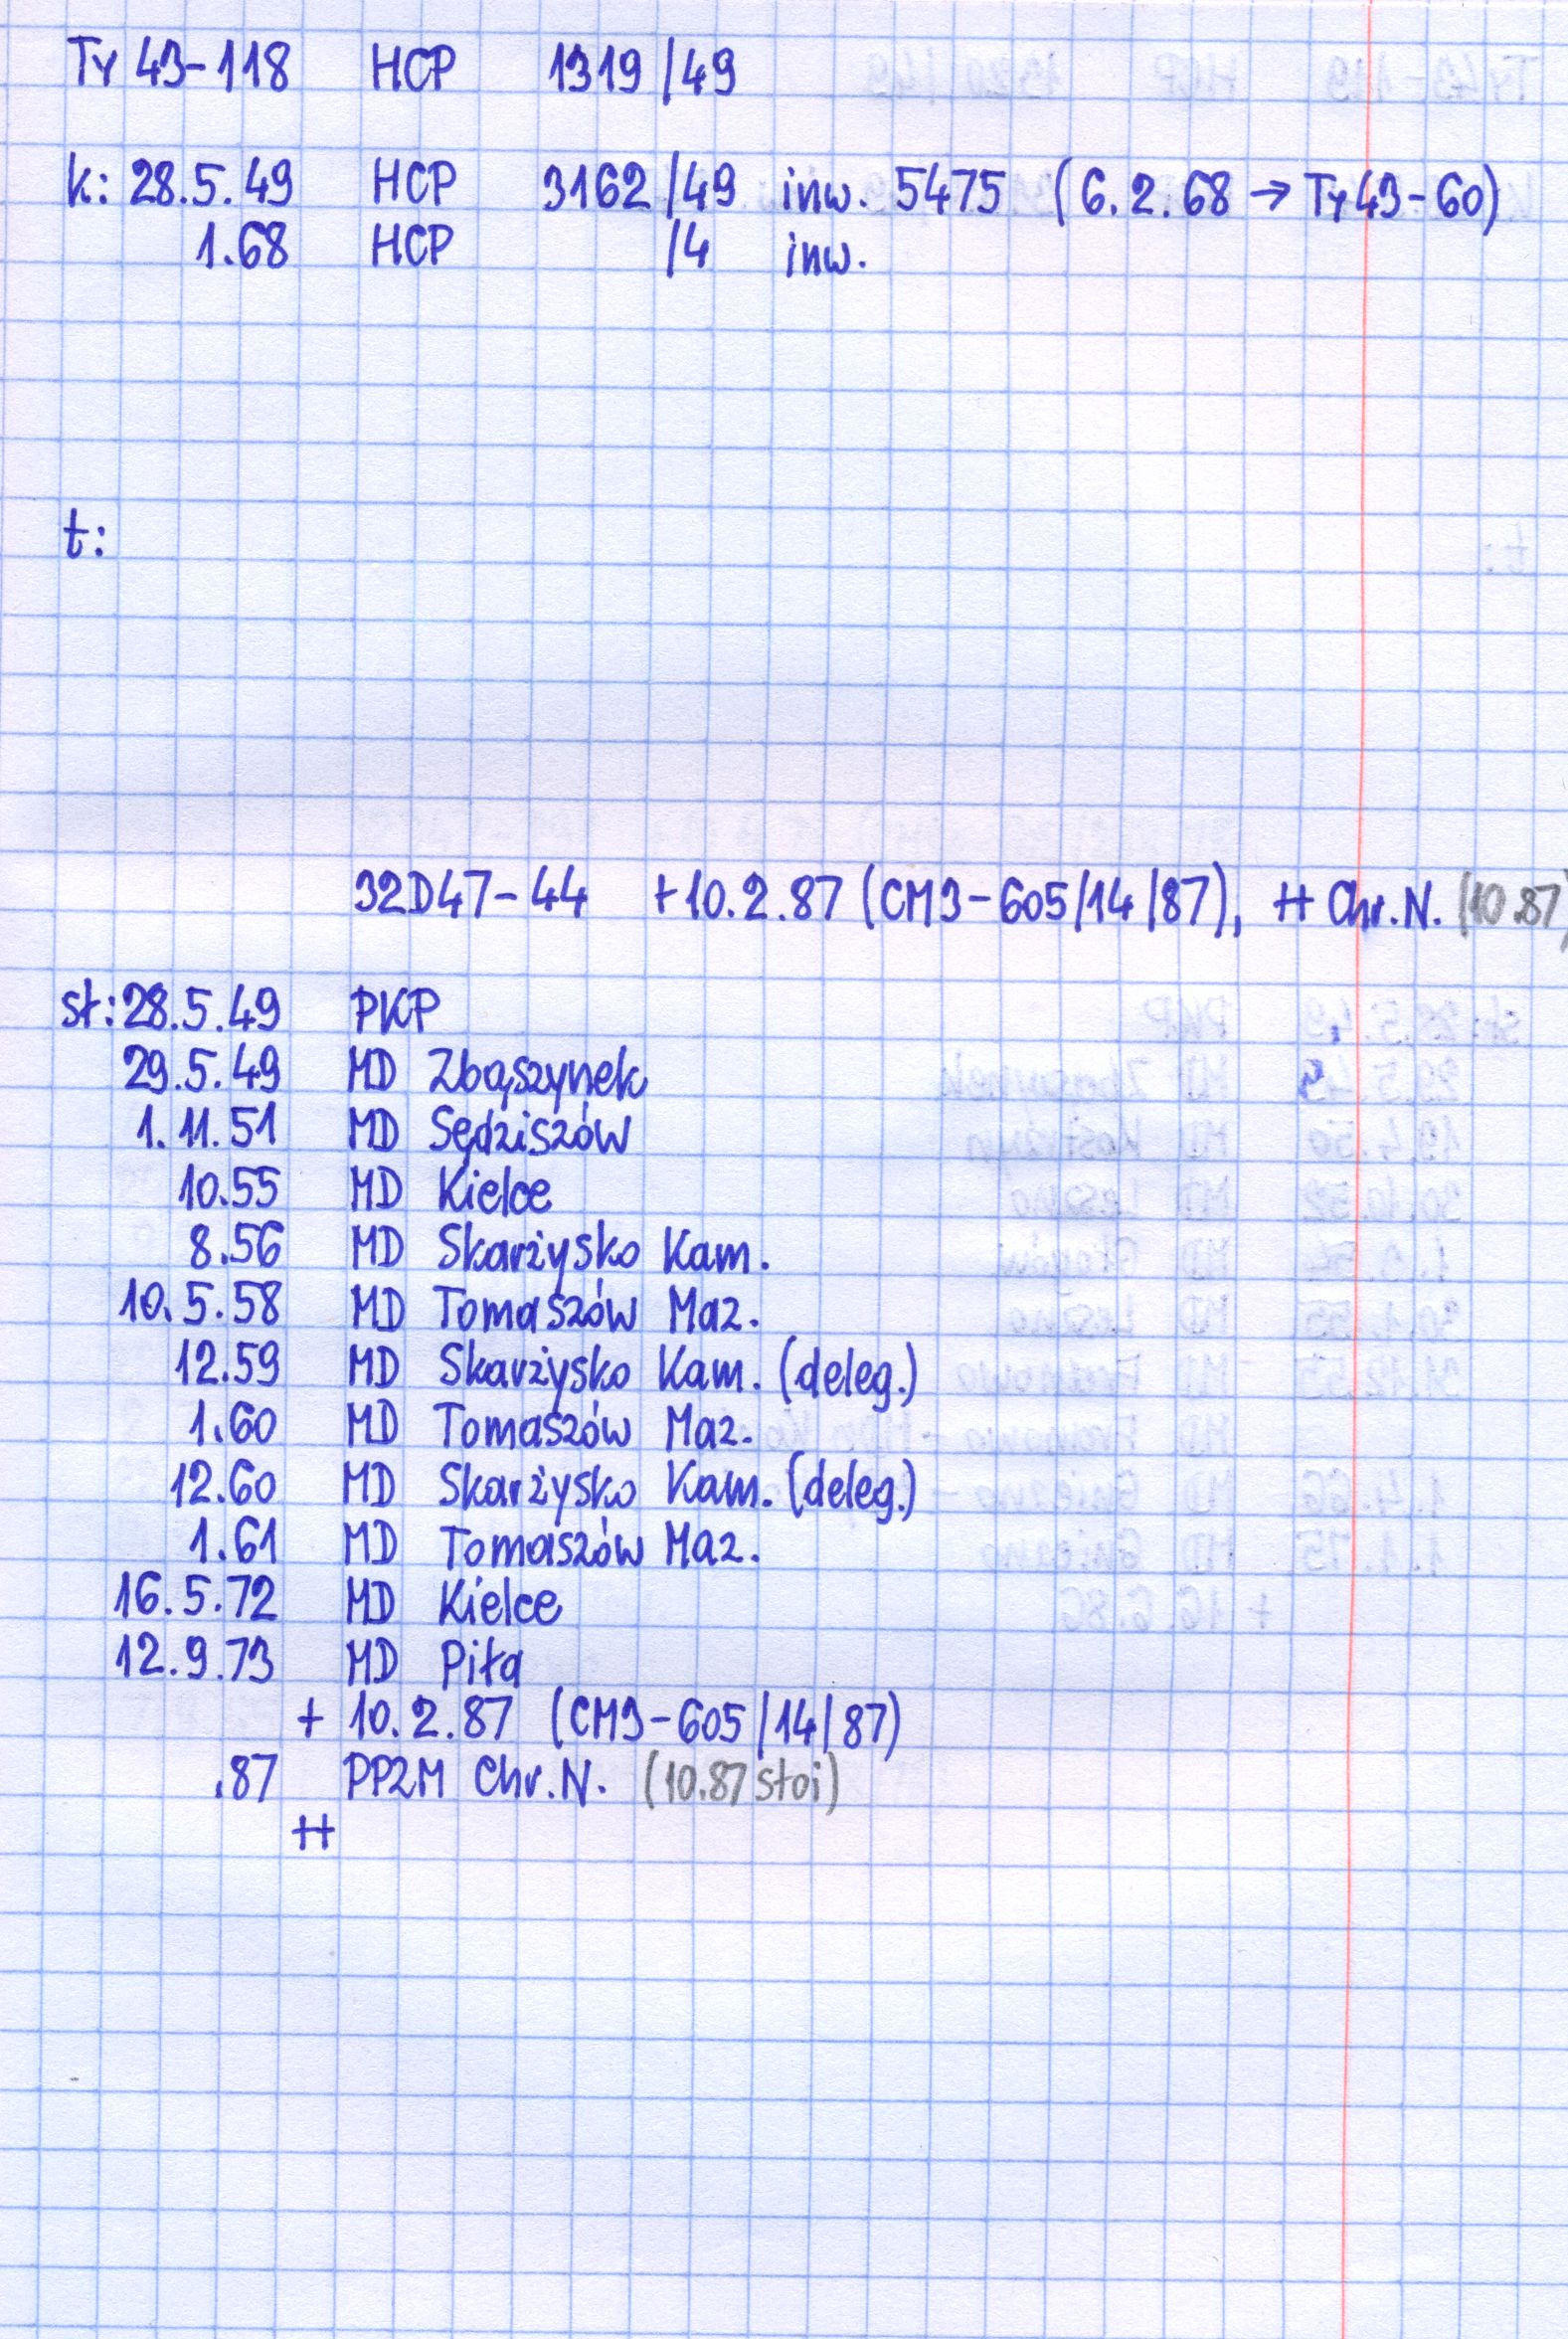 Ty 43-118 HCP 1319/49
k: 28.5.49 HCP 3162/49 inw. 5475 (6.2.68 → Ty43-60)
1.68 HCP /4 inw.
t:
32D47-44 +10.2.87 (CM3-605/14/87), ++ Chr.N. (10.87)
st: 28.5.49 PKP
29.5.49 MD Zbąszynek
1.11.51 MD Sędziszów
10.55 MD Kielce
8.56 MD Skarżysko Kam.
10.5.58 MD Tomaszów Maz.
12.59 MD Skarżysko Kam. (deleg.)
1.60 MD Tomaszów Maz.
12.60 MD Skarżysko Kam. (deleg.)
1.61 MD Tomaszów Maz.
16.5.72 MD Kielce
12.9.73 MD Piła
+ 10.2.87 (CM3-605/14/87)
.87 PPZM Chr.N. (10.87 stoi)
++